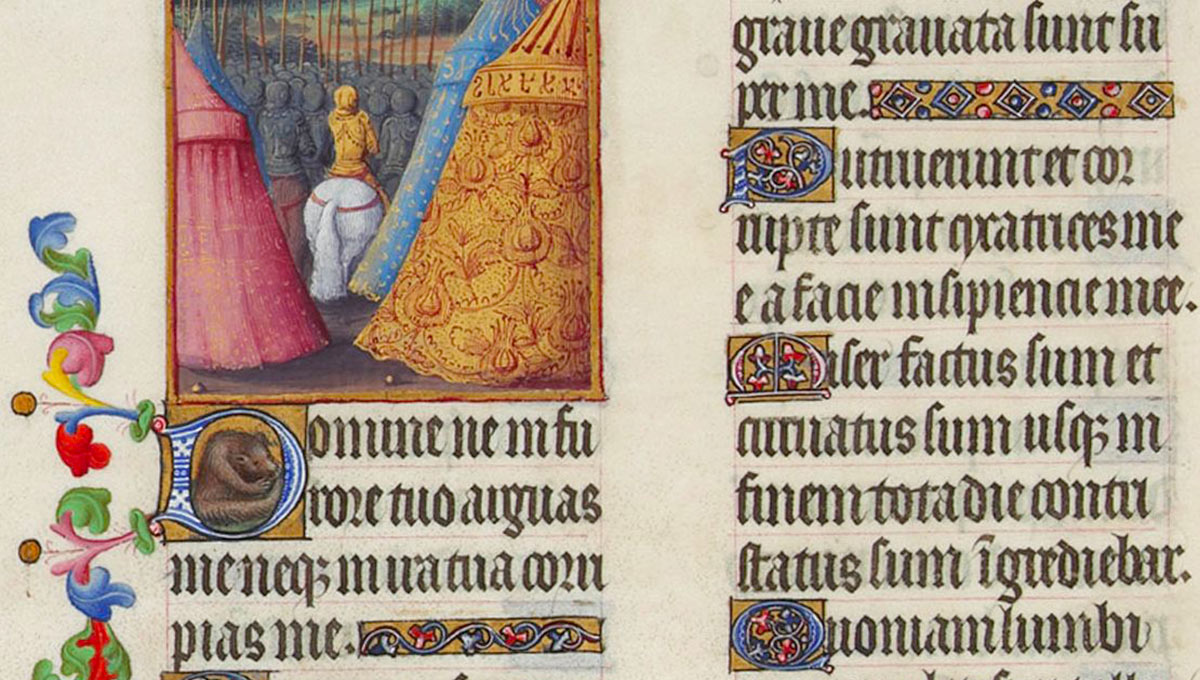 Domine ne in fu
rore tuo arguas
me neqꝫ in ira tua corri
pias me.
graue grauata sunt su
per me.
Putruerunt et cor
rupte sunt cycatrices me
e a facie insipiencie mee.
Miser factus sum et
curuatus sum usqꝫ in
finem tota die contri
status sum īgrediebar.
Quoniam lumbi